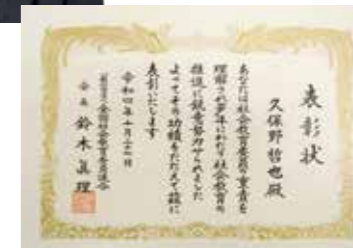 表彰状
久保野哲也殿
あなたは社会教育委員の重責を
理解され多年にわたり社会教育の
推進に鋭意努力せられました
よってその功績をたたえて茲に
表彰いたします
令和四年十月二十七日
一般社団法人全国社会教育委員連合
会長 鈴木眞理